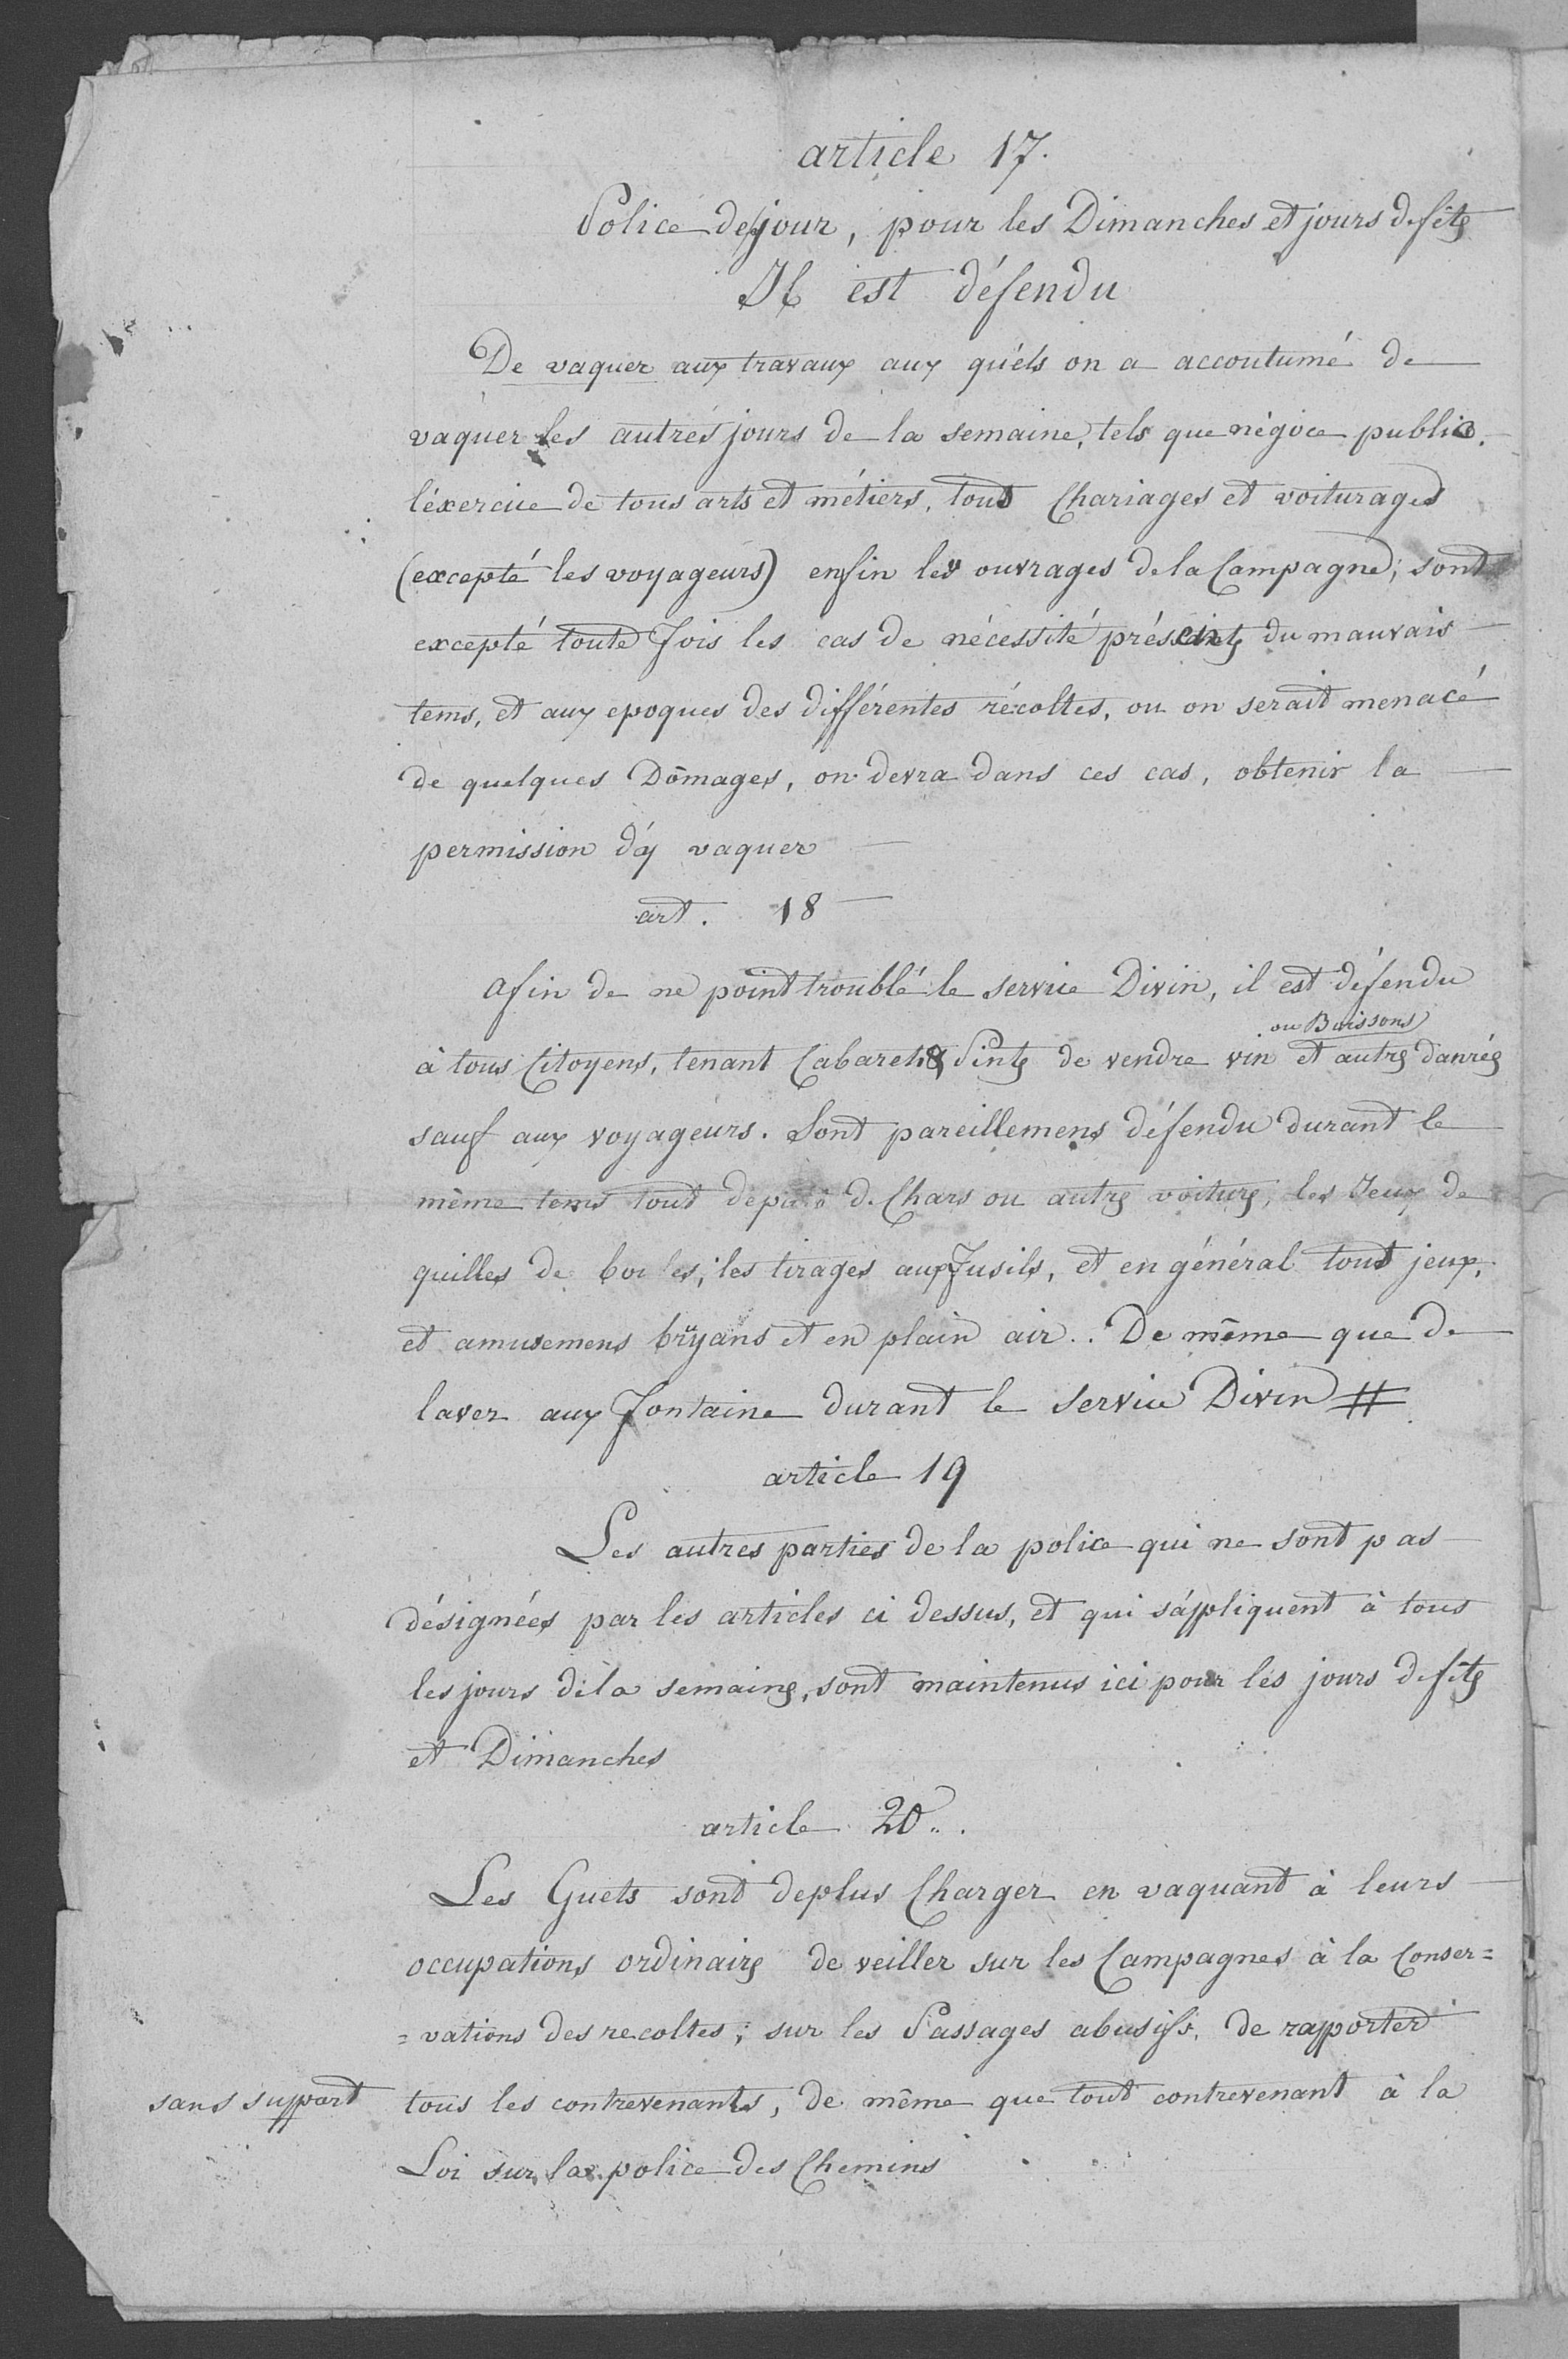 article 17.
Police de jour, pour les Dimanches et jours de fêtes
Il est défendu
De vaquer aux travaux aux quéls on a accoutumé de
vaquer les autres jours de la semaine, tels que négoce public,
léxercice de tous arts et métiers, tout Chariages et voiturages
(excepté les voyageurs) enfin les ouvrages de la Campagne; sont
excepté toute fois les cas de nécessité présents du mauvais
tems, et aux epoques des différentes récoltes, ou on serait menacé
de quelques Dômages, on devra dans ces cas, obtenir la
permission d'y vaquer
art. 18
afin de ne point troublé le service Divin, il est défendu
ou Boissons
à tous Citoyens, tenant Cabarets & Pintes de vendre vin et autres danrées
sauf aux voyageurs. Sont pareillemens défendu durant le
même tems tout depart de Chars ou autres voitures, les Jeux de
quilles de boules, les tirages aux Fusils, et en général tout jeux,
et amusemens brüyans et en plain air.. De même que de
laver aux Fontaine durant le service Divin #
article 19
Les autres parties de la police qui ne sont pas
désignées par les articles ci dessus, et qui s'áppliquent à tous
les jours de la semaines, sont maintenus ici pour les jours de fêtes
et Dimanches
article 20..
Les Guets sont deplus Charger en vaquant à leurs
occupations ordinaires de veiller sur les Campagnes à la Conser=
=vations des recoltes; sur les Passages abusifs, de rapporter
sans support tous les contrevenants, de même que tout contrevenant à la
Loi sur la police des Chemins